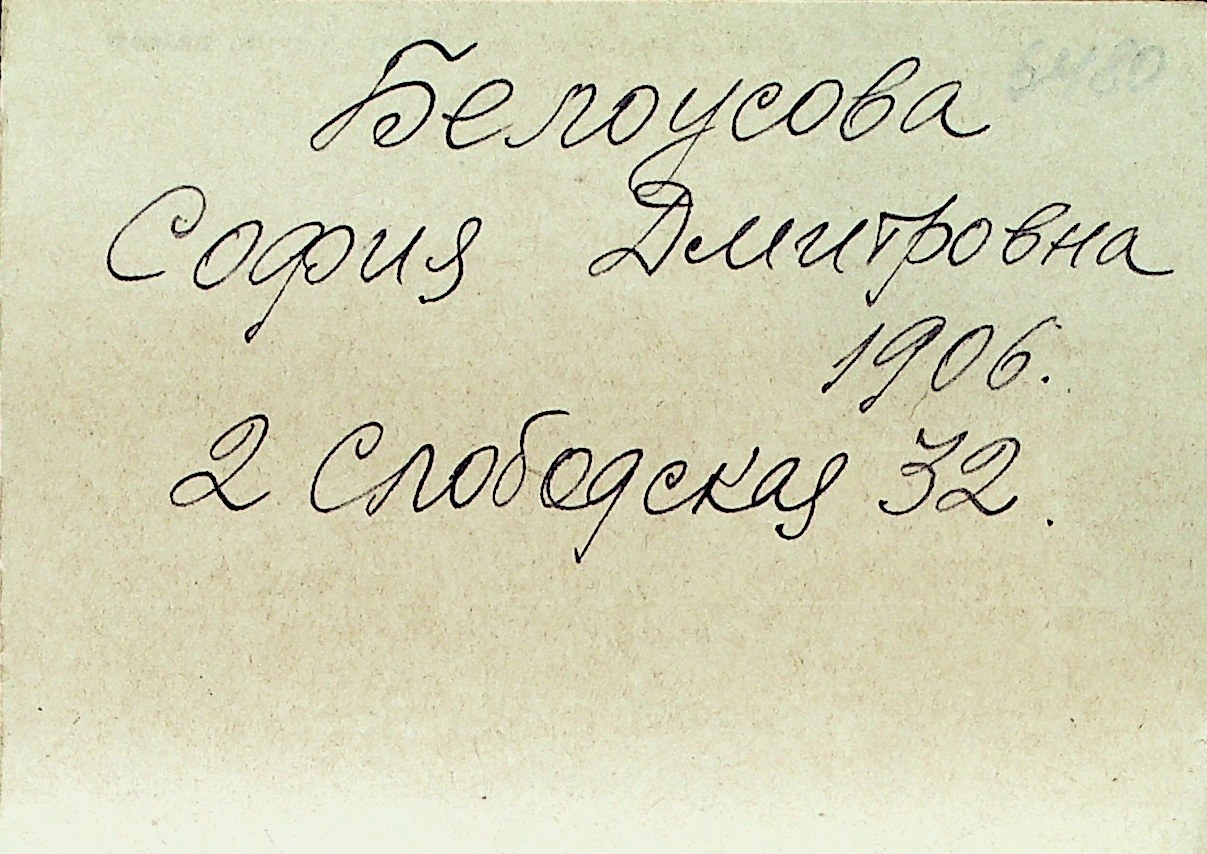 Белоусова
София Дмитровна
1906.
2 Слободская 32.